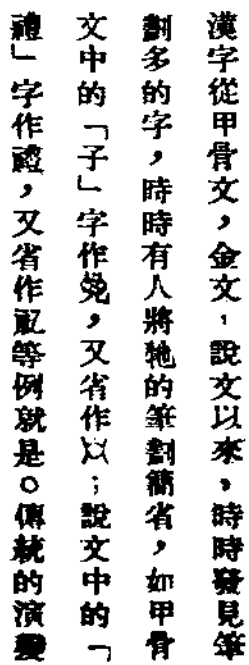 漢字從甲骨文,金文,說文以來,時時發見筆
劃多的字,時時有人將牠的筆劃簡省,如甲骨
文中的「子」字作㕙,又省作;說文中的「
禮」字作禮,又省作礼等例就是。傳統的演變